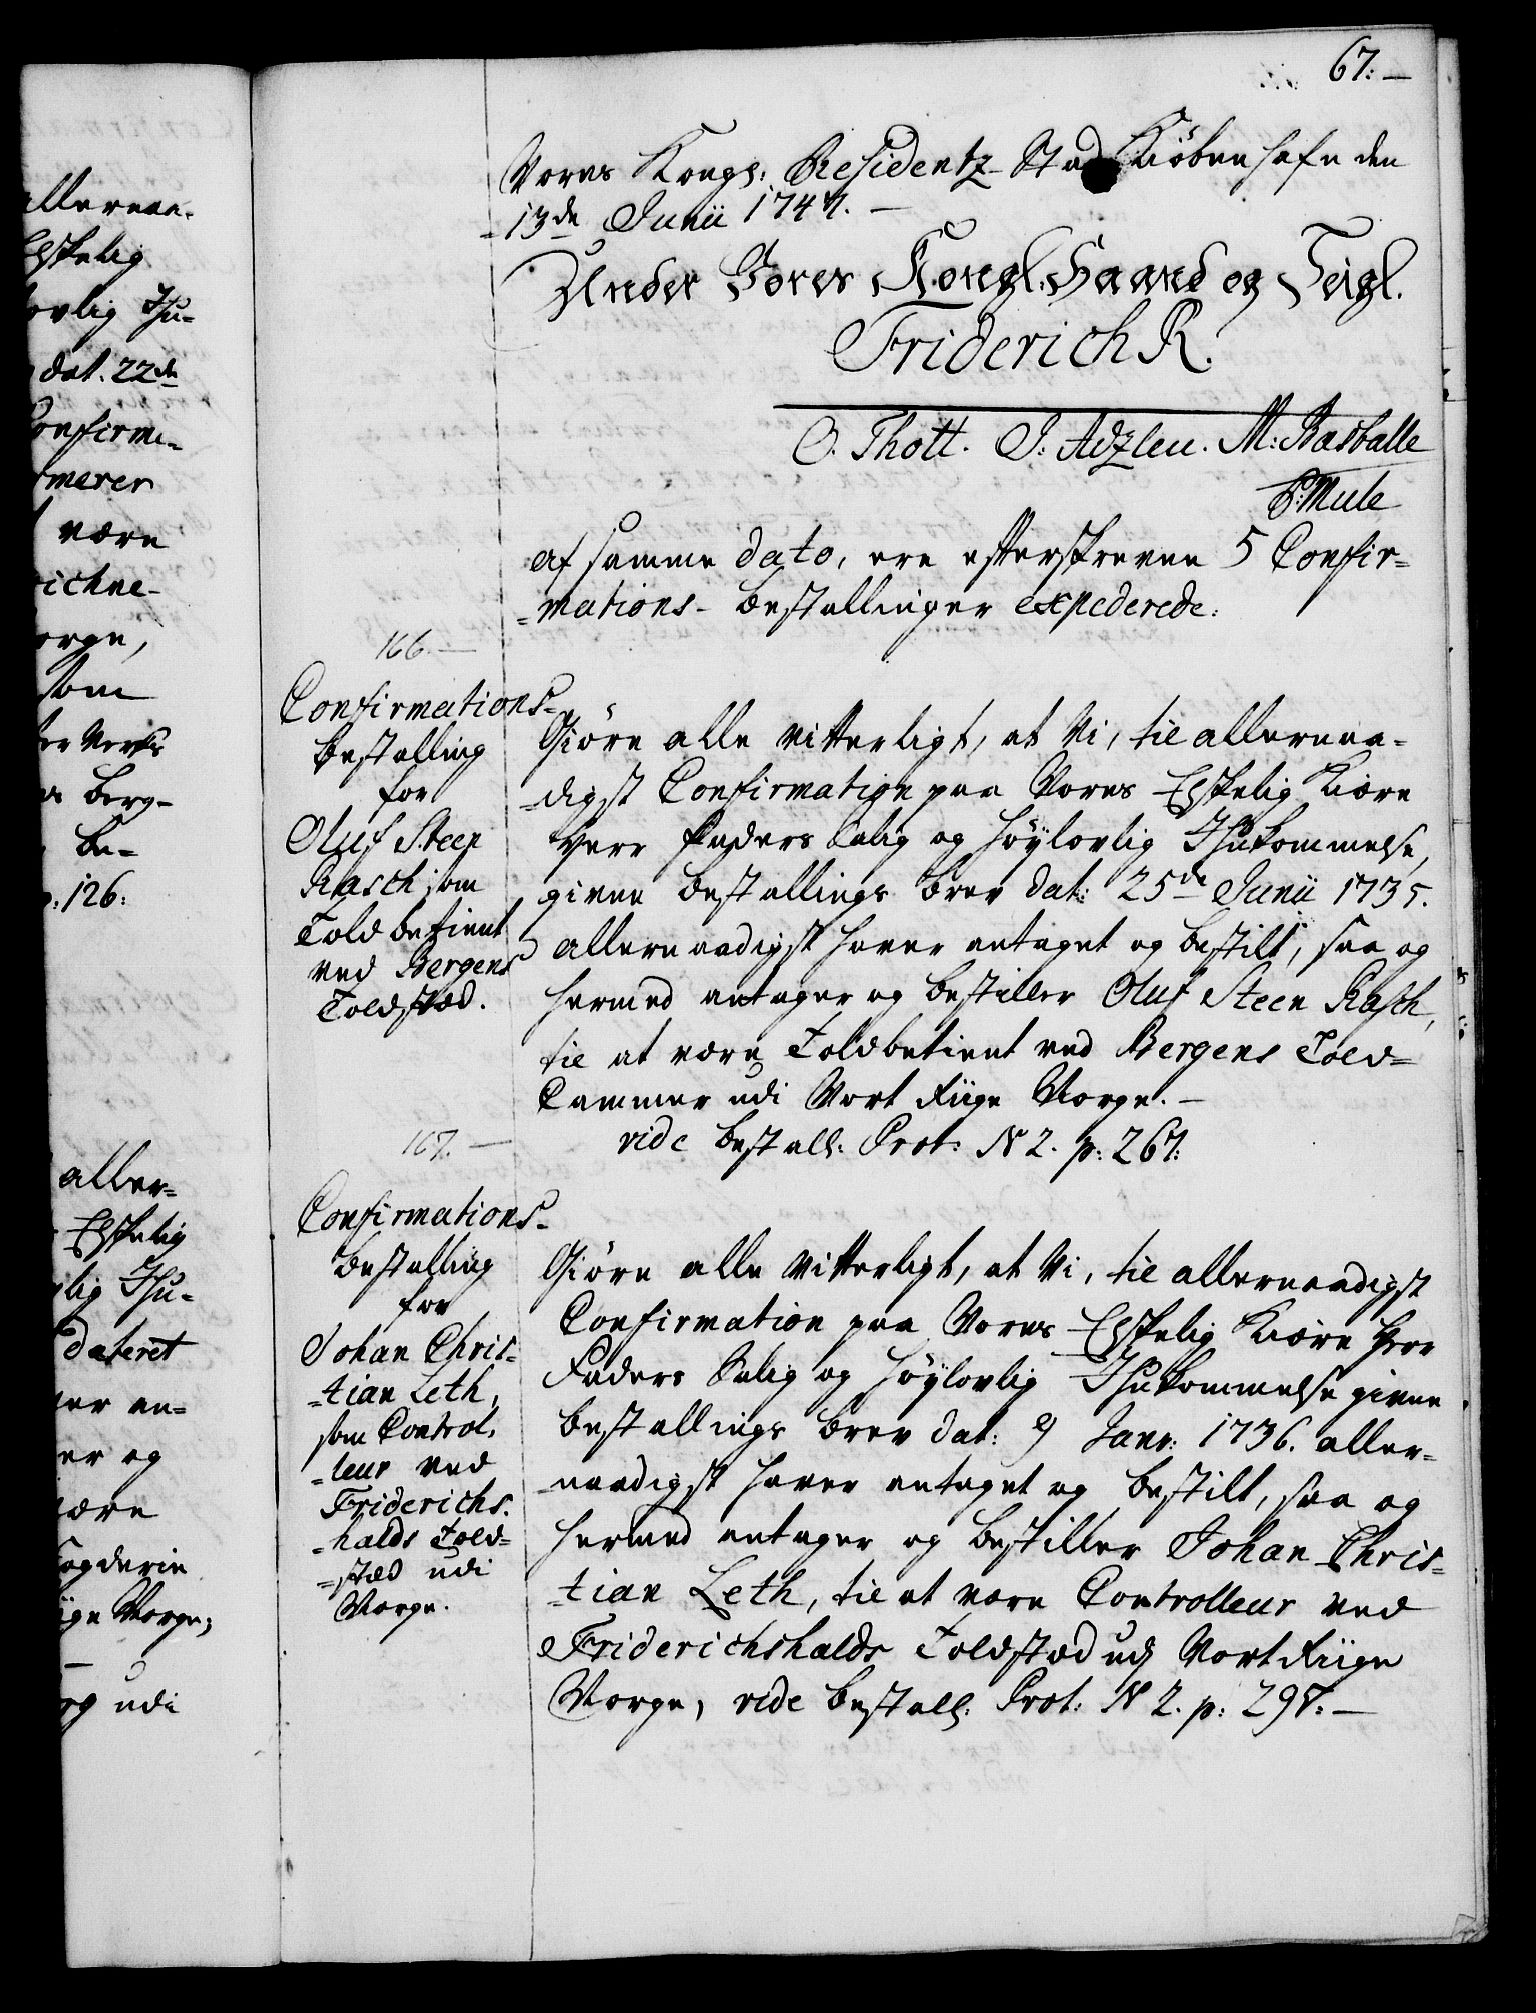 67:
Vores Kongl: Residentz-Stad Kiöbenhafn den
13de Junii 1747.
Under Vores Kongl: Haand og Seigl.
Friderich R.
O. Thott. J: Adzleu. M: Rasballe
P: Mule
Af samme dato, ere efterskrevne 5 Confir=
=mations-Bestallinger expederede:
166.
Confirmations-
Bestalling
for
Oluf Steen
Rasch som
Toldbetient
ved Bergens
Toldstæd.
Giöre alle vitterligt, at Vi, til allernaa=
=digst Confirmation paa Vores Elskelig Kiære
Herr Faders Salig og Höylovlig Ihukommelse,
givne Bestallings Brev dat: 25de Junii 1735.
allernaadigst haver antaget og bestilt, saa og
hermed antager og bestiller Oluf Steen Rasch,
til at være Toldbetient ved Bergens Told=
Cammer udi Vort Riige Norge.
vide Bestall: Prot: N 2. p: 267:
167.
Confirmations-
Bestalling
for
Johan Chris=
=tian Leth,
som Control=
=leur ved
Friderichs=
=halds Told=
=stæd udi
Norge.
Giöre alle Vitterligt, at Vi, til allernaadigst
Confirmation paa Vores Elskelig Kiære Herr
Faders Salig og Höylovlig Ihukommelse givne
Bestallings Brev dat: 9 Janr: 1736. aller=
=naadigst haver antaget og bestilt, saa og
hermed antager og bestiller Johan Chris=
=tian Leth, til at være Controlleur ved
Friderichshalds Toldstæd udj Vort Riige
Norge, vide Bestall: Prot: N 2. p: 298:
allernaa=
Elskelig
Ihu=
dat. 22de
Confirme=
være
som
Berg=
Be=
p: 126:
aller=
Elskelig
Ihu=
dateret
an=
og
Norge,
udi